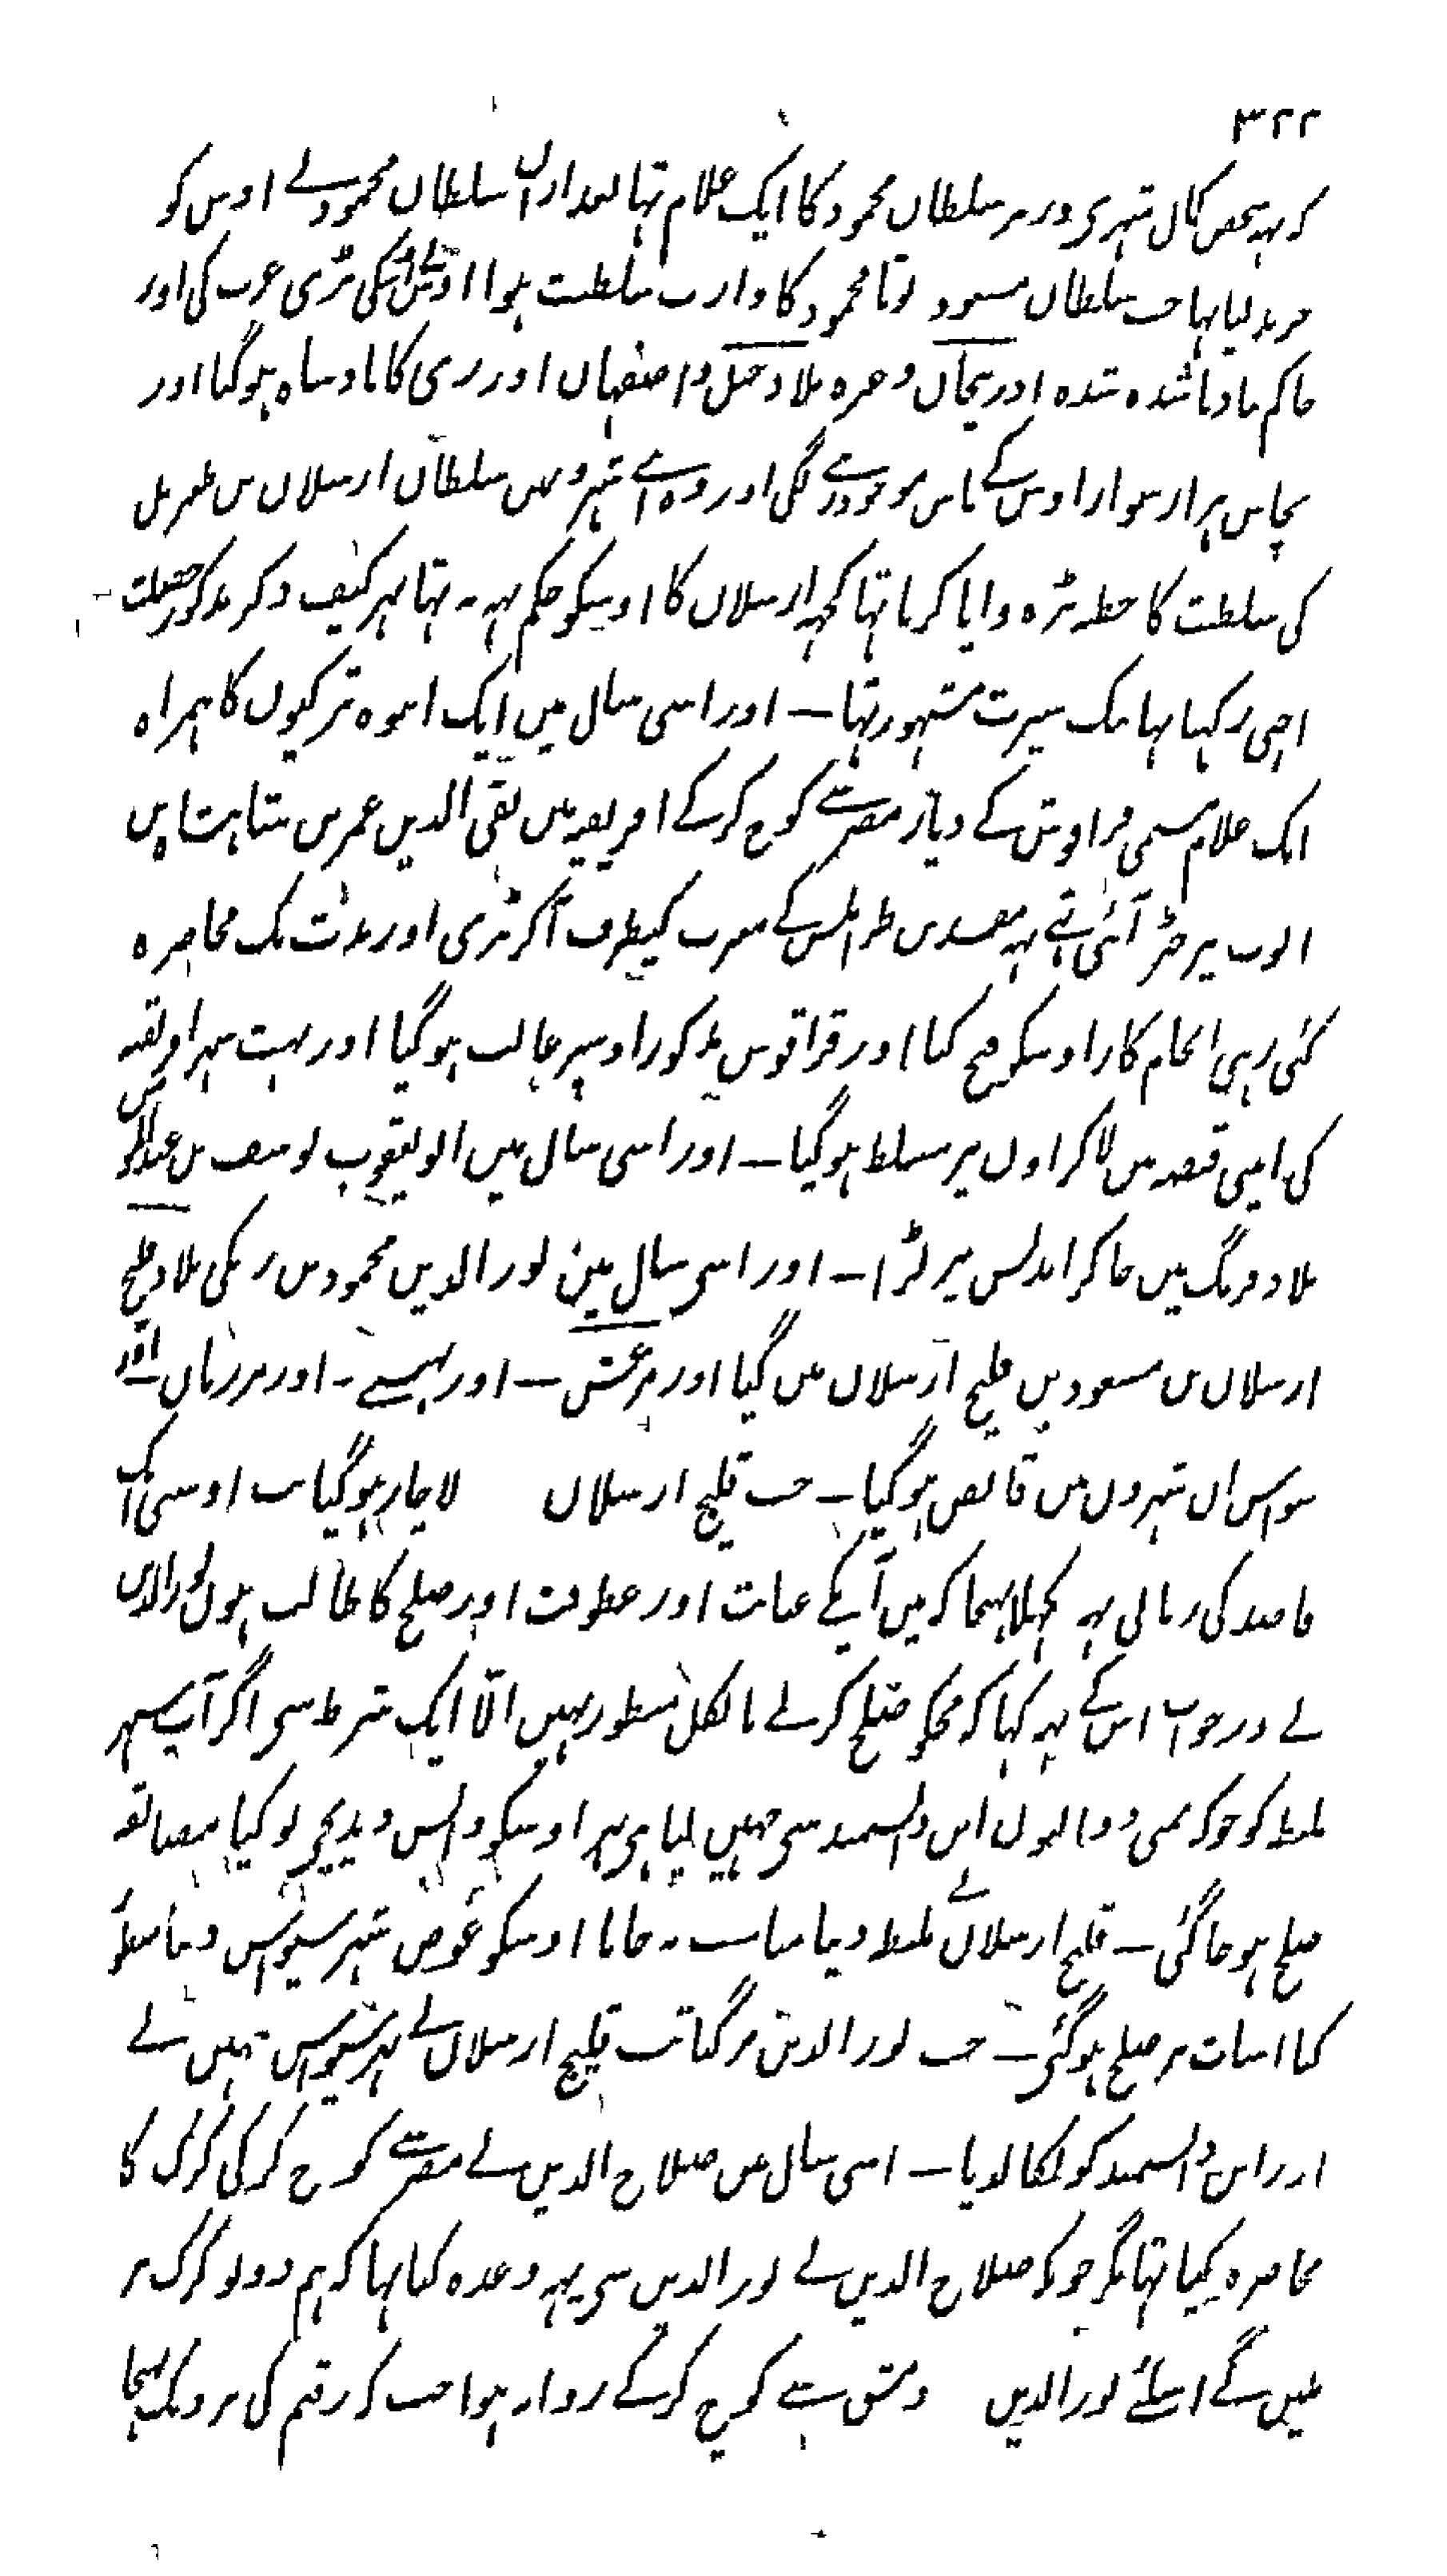 ۳۲۲
کہ یہہ شخص کمال شہری وزیر سلطان محمود کا ایک غلام تہا بعد ازاں سلطان محمود نے اوس کو
خرید لیا تہا جب سلطان مسعود پوتا محمود کا وارث سلطنت ہوا اوسنے اوس کی بڑی عزت کی اور
حاکم بادشاہ شدہ شدہ اذربیجان وغیرہ بلاد جبل واصفہان اور ری کا بادشاہ ہوگیا اور
پچاس ہزار سوار اوس کے پاس موجود رہے لگی اور وہ اپنے شہروں میں سلطان ارسلان بن طغریل
کی سلطنت کا خطبہ پڑہ وایا کرتا تہا کچہہ ارسلان کا اوسکو حکم یہہ نہ تہا بہر کیف ذکر مذکور خصلت
اچھی رکہتا تہا نیک سیرت مشہور تہا ـ اور اسی سال میں ایک انبوہ ترکیوں کا ہمراہ
ایک غلام مسمی قراقوش کے دیار مصر سے کوچ کرکے افریقہ میں تقی الدین عمر بن شاہنشاہ بن
ایوب پر چڑ آئی تہے یہہ مفسدین طرابلس کے مغرب کیطرف آکر پڑی اور مدت تک محاصرہ
کئی رہی انجام کار اوسکو فتح کیا اور قراقوش مذکور اوسپر غالب ہوگیا اور بہت شہر افریقہ
کی اپنی قبضہ میں لاکر اون پر مسلط ہوگیا ـ اور اسی سال میں ابو یعقوب یوسف بن عبدالمومن
بلاد فرنگ میں جاکر اندلس پر لڑا ـ اور اسی سال میں نور الدین محمود بن زنگی بلاد قلیج
ارسلان بن مسعود بن قلیج ارسلان میں گیا اور مرعش ـ اور بہسنے ـ اور مرزبان ـ اور
سیواس ان شہروں میں قابض ہوگیا ـ جب قلیج ارسلان لاچار ہوگیا تب اوسی ایک
قاصد کی زبانی یہہ کہلا بہیجا کہ میں آپکے عنایت اور عطوفت اور صلح کا طالب ہوں نورالدین
نے در جواب اس کے یہہ کہا کہ مجکو صلح کرنے بالکل منظور نہیں الّا ایک شرط سی اگر آپ شہر
ملطیہ کو جو کہ تمنی ذوالنون ابن دانشمند سی چہین لیا ہی پہر اوسکو واپس دیدیجیے تو کیا مضائقہ
صلح ہو جاگئی ـ قلیج ارسلان نے ملطیہ دینا مناسب نہ جانا اوسکو عوض شہر سیواس دینا منظور
کیا اسبات پر صلح ہوگئی ـ جب نور الدین مرگیا تب قلیج ارسلان نے پہر سیواس چہین لے
اور ابن دانشمند کو نکال دیا ـ اسی سال میں صلاح الدین نے مصر سے کوچ کرکی کرک کا
محاصرہ کیا تہا مگر چونکہ صلاح الدین نے نور الدین سی یہہ وعدہ کیا تہا کہ ہم دونو کرک پر
ملیں گے اسلئے نور الدین دمشق سے کوچ کرکے روانہ ہوا جب کہ رقیم کی نزدیک پہنچا